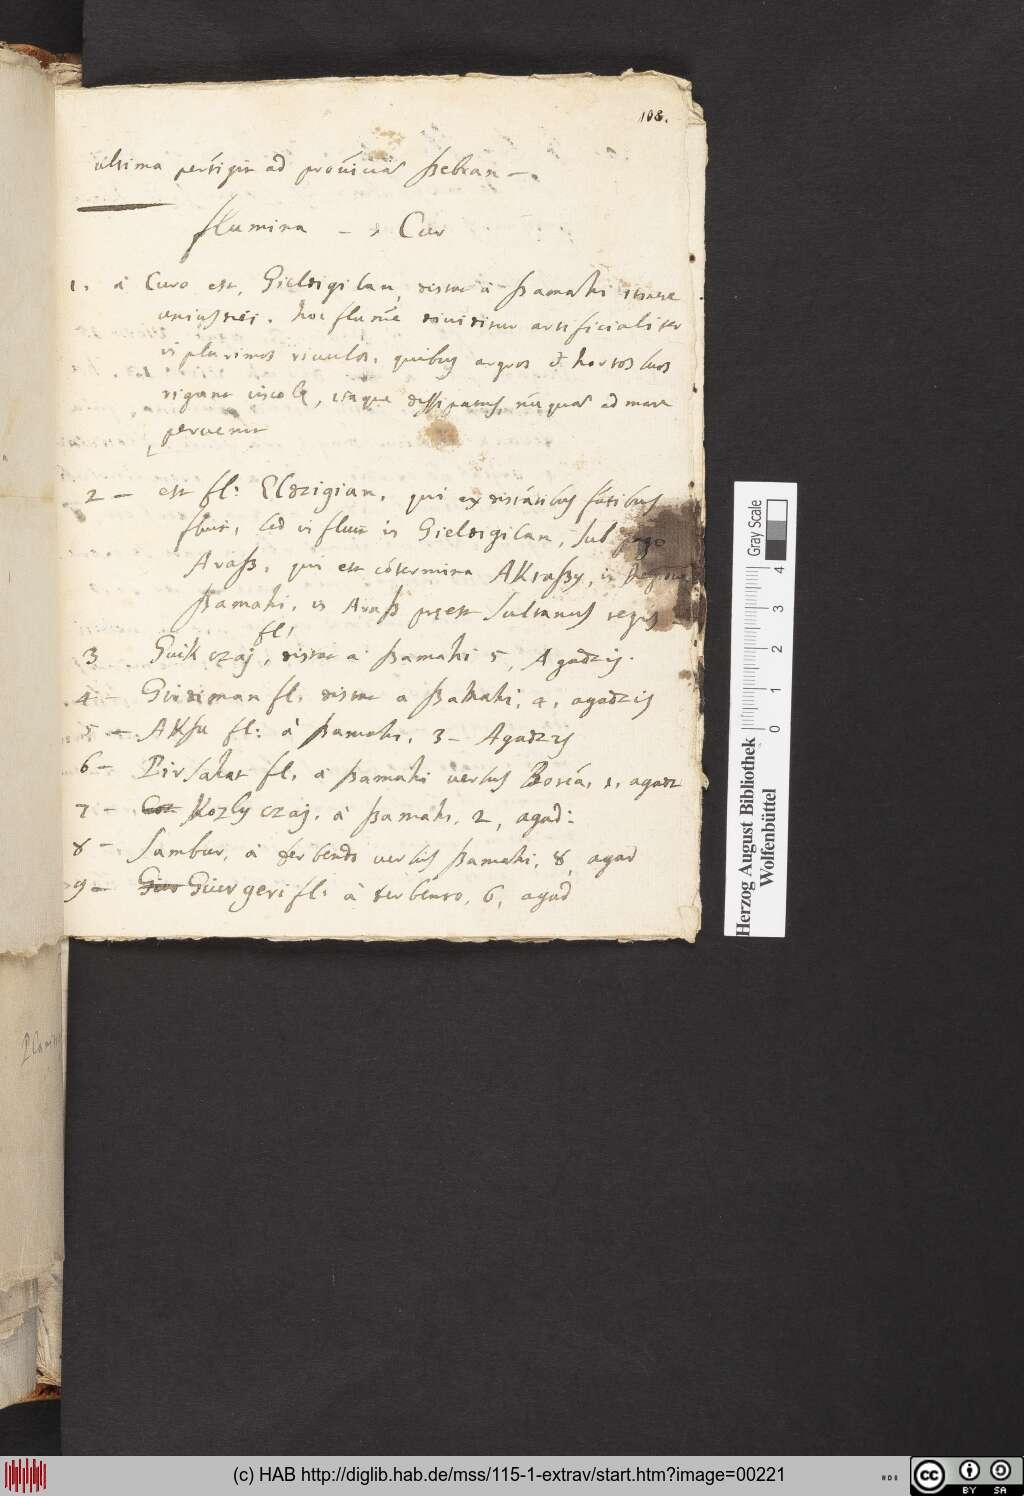 108.
ultima pertigit ad provinciā ßebran –
flumina – , Cur
1. à Curo est, Gieldigilan, distat à ßamahi itinere
unius diei. hoc flumē dividitur artificialiter
in plurimos rivulos, quibus agros et hortos suos
rigant incolę, itaque dissipatus, nūquā ad mare
pervenit
2 – est fl: Eldzigian, qui ex distātibus fōtibus
fluit, sed influit in Gieldigilan, sub pago
Araß, qui est cōtermina AKtaßy, in
ßamahi, in Araß pręest Sultanus regis
3 Guik czaj fl, distat à ßamahi 5, Agadzis.
4 – Girdiman fl. distat a ßamahi, 4, agadzis
5 – AKsu fl: à ßamahi, 3 – Agadzis
6 – Pirsahat fl, à ßamahi versus Boreā, 1, agadz
7 – Kozly czaj, à ßamahi, 2, agad:
8 – Sambur, à derbendo versus ßamahi, 8, agad
9 – Giur Giurgeri fl: à derbento, 6, agad
Herzog August Bibliothek
Wolfenbüttel
Gray Scale
0 1 2 3 4
(c) HAB http://diglib.hab.de/mss/115-1-extrav/start.htm?image=00221
cc BY SA